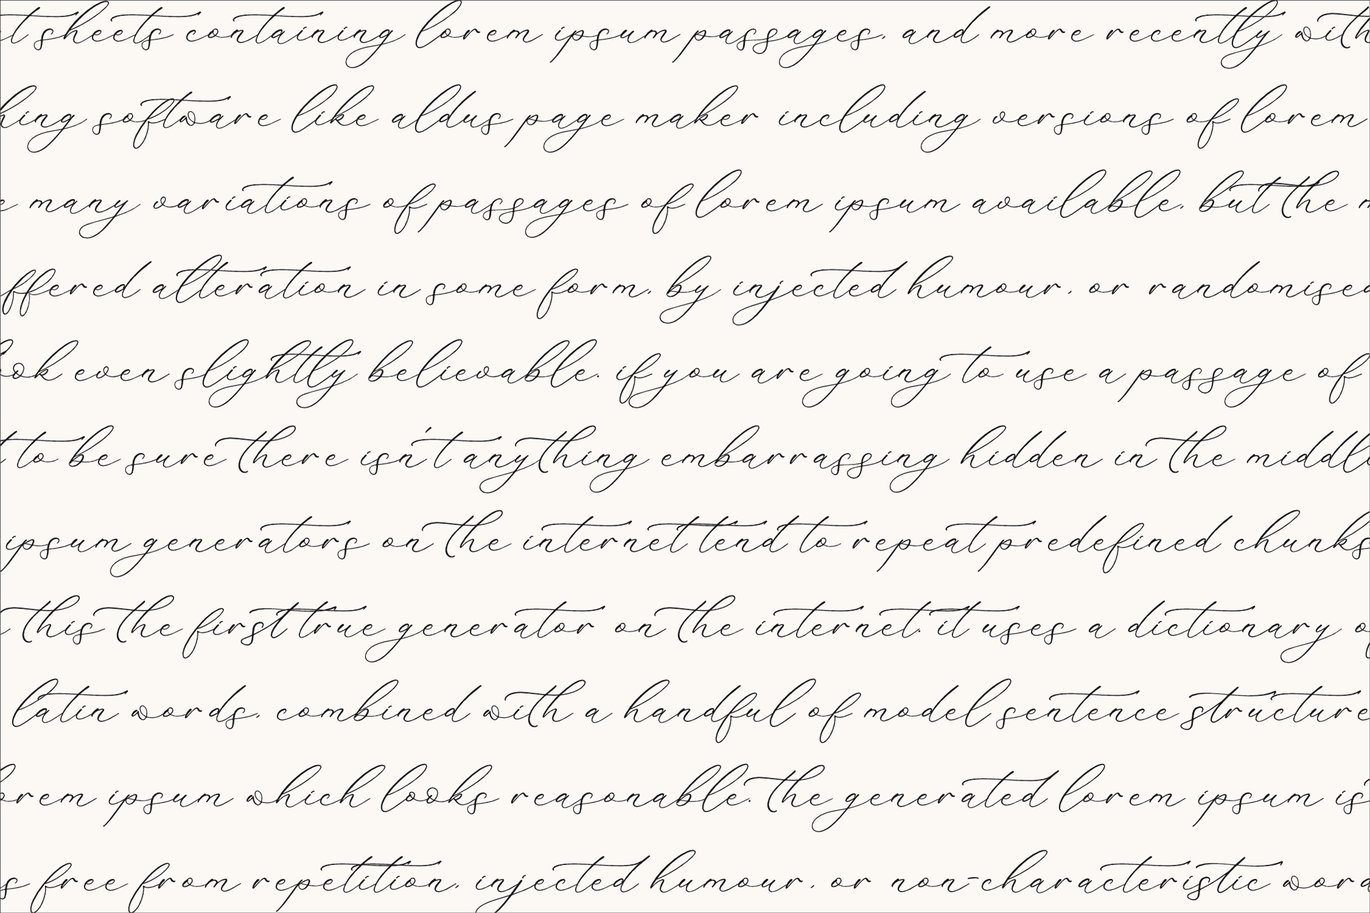 t sheets containing lorem ipsum passages. and more recently with
hing software like aldus page maker including versions of lorem
e many variations of passages of lorem ipsum available. but the m
ffered alteration in some form. by injected humour. or randomised
ook even slightly believable. if you are going to use a passage of
t to be sure there isn't anything embarrassing hidden in the middle
ipsum generators on the internet tend to repeat predefined chunks
this the first true generator on the internet. it uses a dictionary o
latin words. combined with a handful of model sentence structure
orem ipsum which looks reasonable. the generated lorem ipsum is
s free from repetition. injected humour. or non-characteristic word